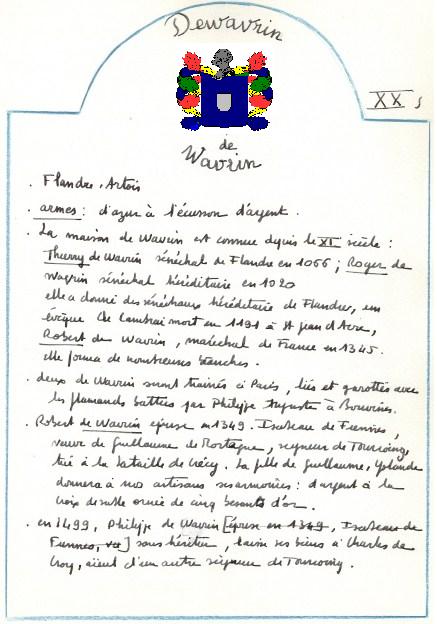 Dewavrin
XX s
de
Wavrin
. Flandre, Artois
. armes : d'azur à l'écusson d'argent .
. La maison de Wavrin est connue depuis le XI siècle :
Thierry de Wavrin sénéchal de Flandre en 1066 ; Roger de
Wavrin sénéchal héréditaire en 1020
elle a donné des sénéchaux héréditaire de Flandres, un
évêque de Cambrai mort en 1191 à St Jean d'Acre,
Robert de Wavrin, maréchal de France en 1345.
elle forma de nombreuses branches .
. deux de Wavrin seront traînés à Paris, liés et garottés avec
les flamands battus par Philippe Auguste à Bouvines.
. Robert de Wavrin épouse en 1349. Isabeau de Fiennes,
veuve de Guillaume de Mortagne, seigneur de Tourcoing,
tué à la bataille de Crécy. La fille de Guillaume, Yolande
donnera à nos artisans ses armoiries : d'argent à la
croix de sable ornée de cinq besants d'or .
. en 1499, Philippe de Wavrin [épouse en 1349, Isabeau de
Fiennes,] sans héritier, laisse ses biens à Charles de
Croy, aïeul d'un autre seigneur de Tourcoing .